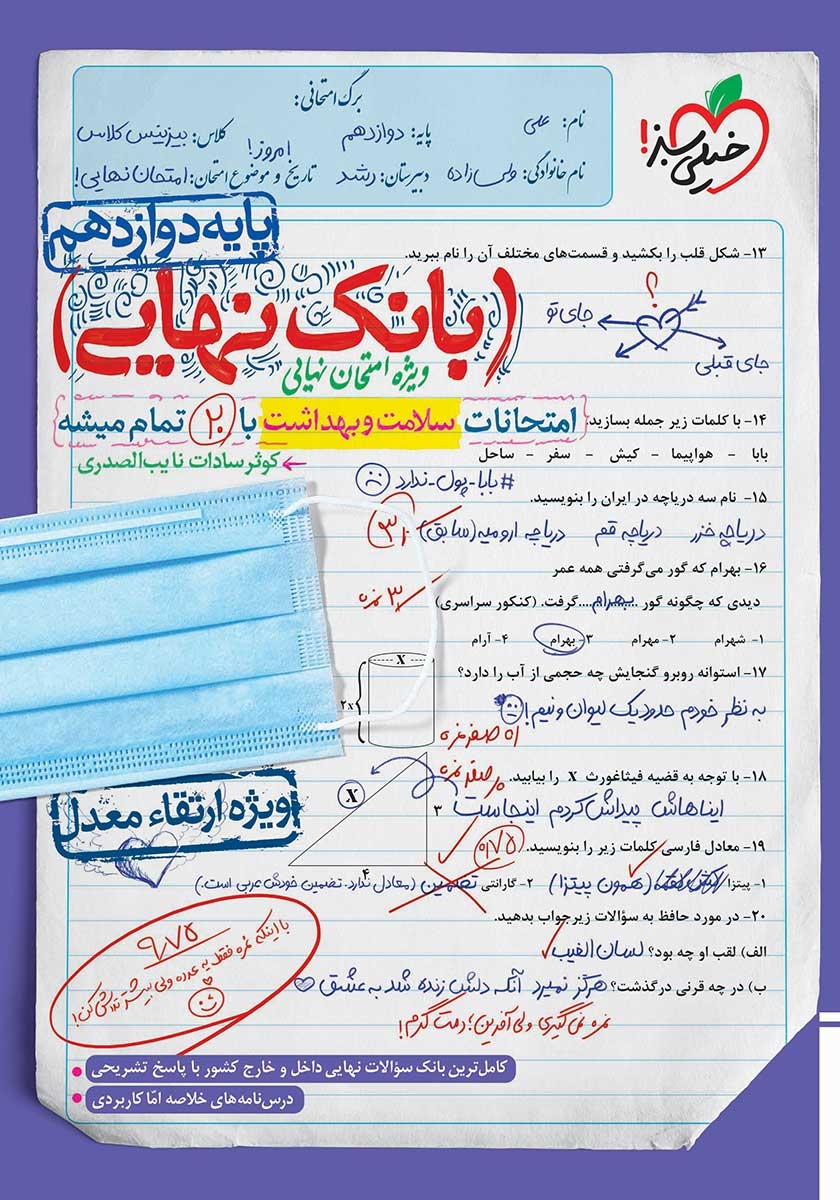 خیلی سبز!
برگ امتحانی:
نام: علی
پایه: دوازدهم
کلاس: بیزینس کلاس
نام خانوادگی: ولی زاده
دبیرستان: رشد
تاریخ و موضوع امتحان: امروز! امتحان نهایی!
پایه دوازدهم
۱۳- شکل قلب را بکشید و قسمت‌های مختلف آن را نام ببرید.
(بانک نهایی)
؟
جای تو
جای قبلی
ویژه امتحان نهایی
۱۴- با کلمات زیر جمله بسازید:
امتحانات سلامت و بهداشت با ۲۰ تمام میشه
بابا - هواپیما - کیش - سفر - ساحل
کوثر سادات نایب‌الصدری
#بابا-پول-ندارد
۱۵- نام سه دریاچه در ایران را بنویسید.
دریاچه خزر دریاچه قم دریاچه ارومیه (سابق)
۱۶- بهرام که گور می‌گرفتی همه عمر
دیدی که چگونه گور ....بهرام.... گرفت. (کنکور سراسری)
۳ نمره
۱- شهرام ۲- مهرام ۳- بهرام ۴- آرام
۱۷- استوانه روبرو گنجایش چه حجمی از آب را دارد؟
X
2x
به نظر خودم حدود یک لیوان و نیم!
صفر نمره
۱۸- با توجه به قضیه فیثاغورث X را بیابید.
صفر نمره
X
۳
۴
ایناهاش پیداش کردم اینجاست
ویژه ارتقاء معدل
۱۹- معادل فارسی کلمات زیر را بنویسید.
۰/۷۵
۱- پیتزا (همون پیتزا) ۲- گارانتی تضمین (معادل ندارد. تضمین خودش عربی است.)
۲۰- در مورد حافظ به سؤالات زیر جواب بدهید.
الف) لقب او چه بود؟ لسان الغیب
ب) در چه قرنی درگذشت؟ هرگز نمیرد آنکه دلش زنده شد به عشق
نمره نمی‌گیری ولی آفرین؛ دمت گرم!
۹/۷۵
با اینکه نمره فقط یه عدده ولی بیشتر تلاش کن!
کامل‌ترین بانک سؤالات نهایی داخل و خارج کشور با پاسخ تشریحی
درس‌نامه‌های خلاصه امّا کاربردی